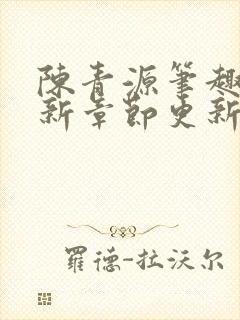 陳青源筆趣
新章節更新
羅德-拉沃尔